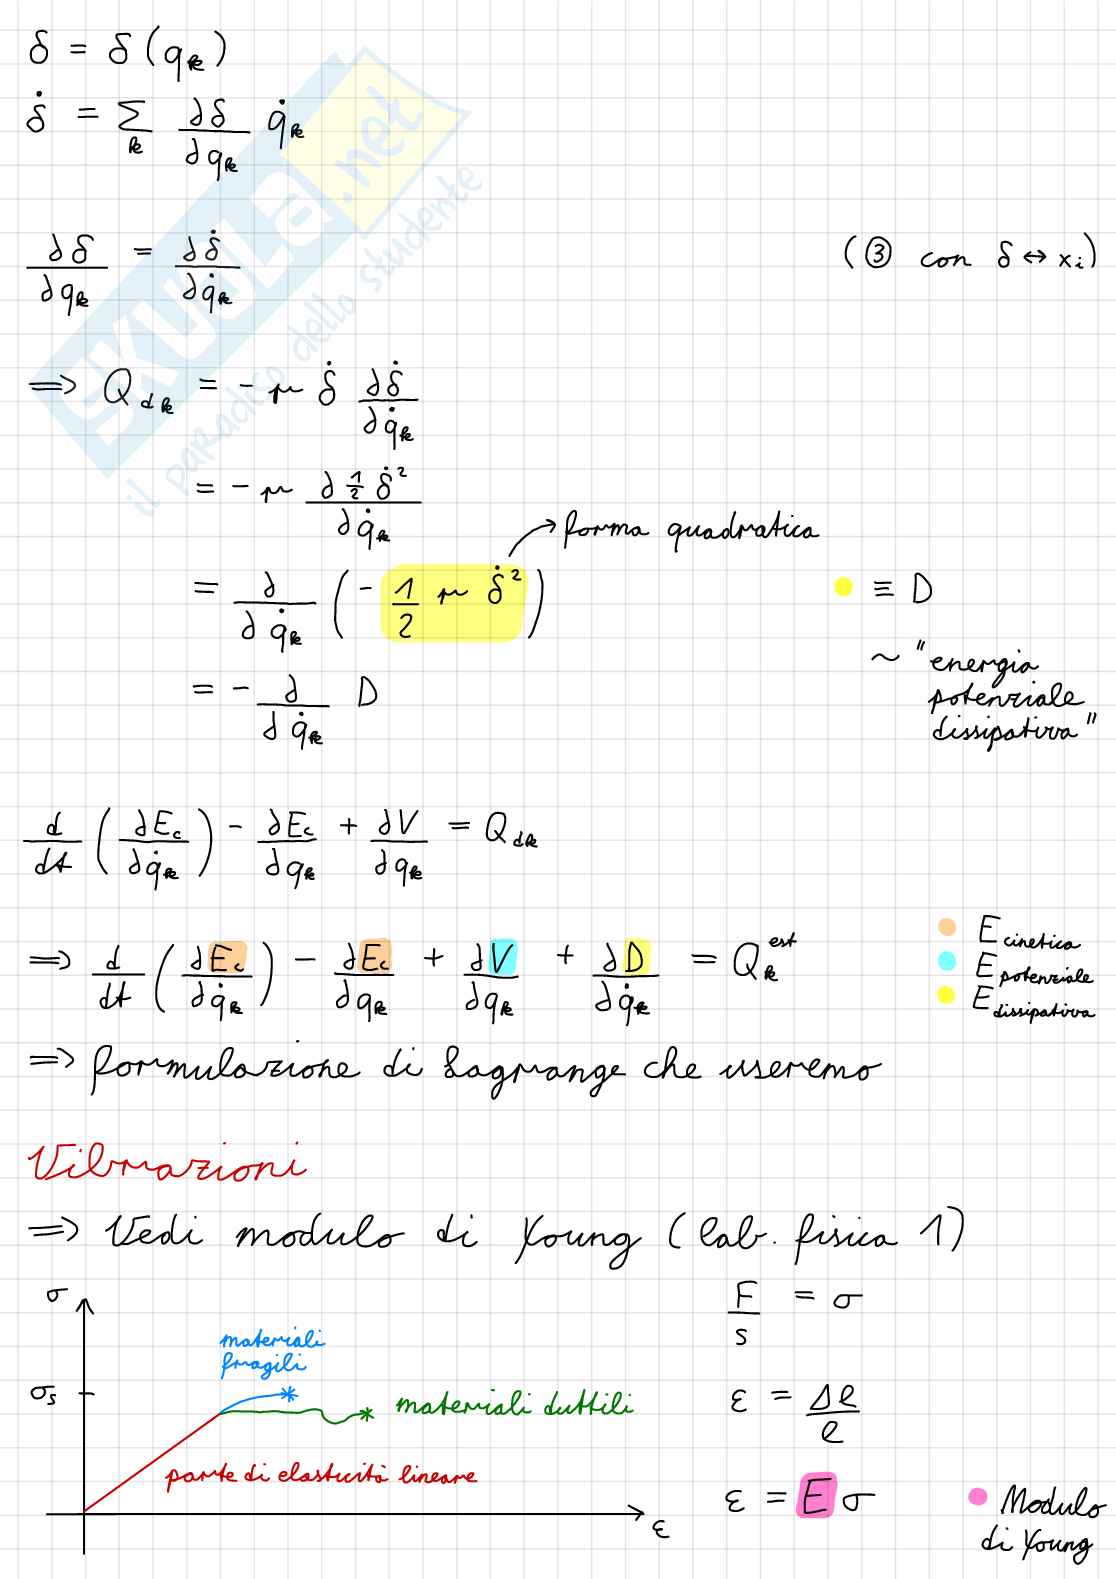 δ = δ(qₖ)
δ̇ = Σₖ ∂δ/∂qₖ q̇ₖ
∂δ/∂qₖ = ∂δ̇/∂q̇ₖ (③ con δ ↔ xᵢ)
⟹ Q_dk = - μ δ̇ ∂δ̇/∂q̇ₖ
= - μ ∂ ½ δ̇² / ∂q̇ₖ
forma quadratica
= ∂/∂q̇ₖ (- 1/2 μ δ̇²) ≡ D
~ "energia
potenziale
dissipativa"
= - ∂/∂q̇ₖ D
d/dt (∂Ec/∂q̇ₖ) - ∂Ec/∂qₖ + ∂V/∂qₖ = Q_dk
⟹ d/dt (∂Ec/∂q̇ₖ) - ∂Ec/∂qₖ + ∂V/∂qₖ + ∂D/∂q̇ₖ = Qₖ^est
E cinetica
E potenziale
E dissipativa
⟹ formulazione di Lagrange che useremo
Vibrazioni
⟹ Vedi modulo di Young (lab. fisica 1)
σ
σs
materiali
fragili
materiali duttili
parte di elasticità lineare
ε
F/s = σ
ε = Δl/l
ε = E σ
Modulo
di Young
SKUOLA.net
il paradiso dello studente